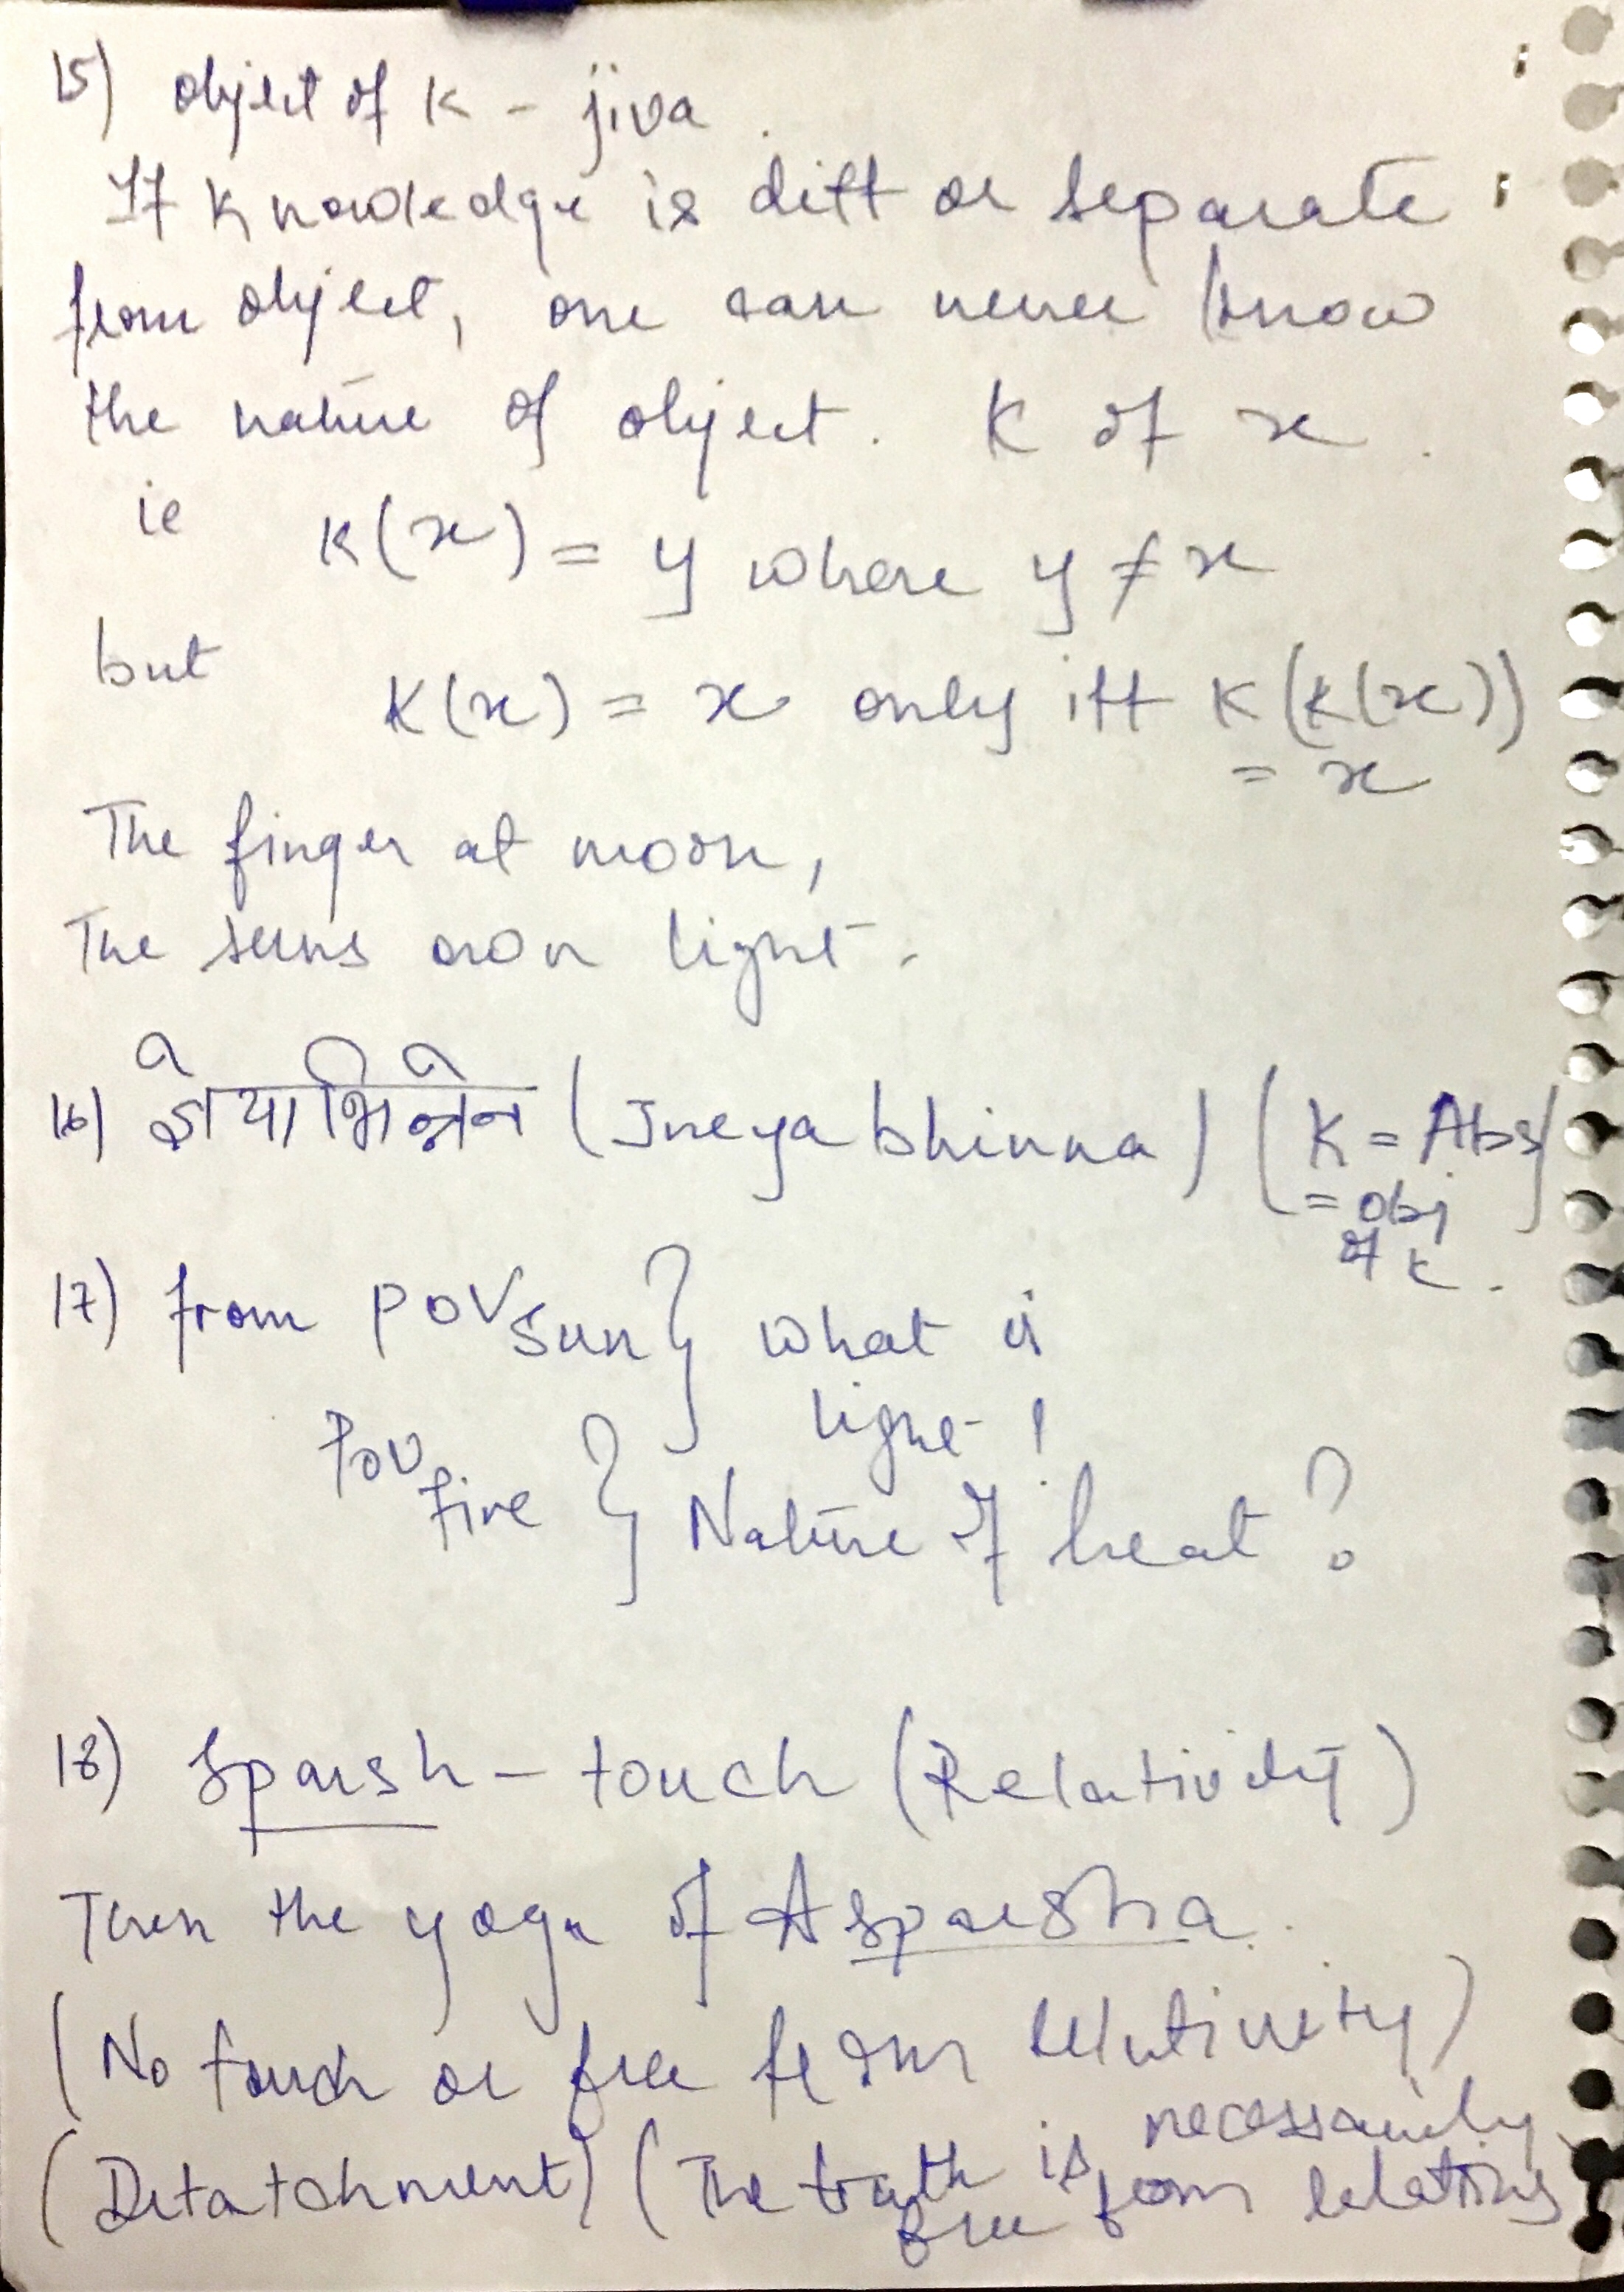 15) object of K - jiva.
If Knowledge is diff or separate
from object, one can never know
the nature of object. K of x.
ie K(x) = y where y ≠ x
but K(x) = x only iff K(K(x))
= x
The finger at moon,
The suns own light.
16) ज्ञेयाभिन्नेन (Jneyabhinna) (K = Abs
= obj
of K.)
17) from POV sun } what is
light!
POV fire } Nature of heat?
18) Sparsh - touch (Relativity)
Then the yoga of Asparsha.
(No touch or free from relativity)
(Detatchment) (The truth is necessarily
free from relations